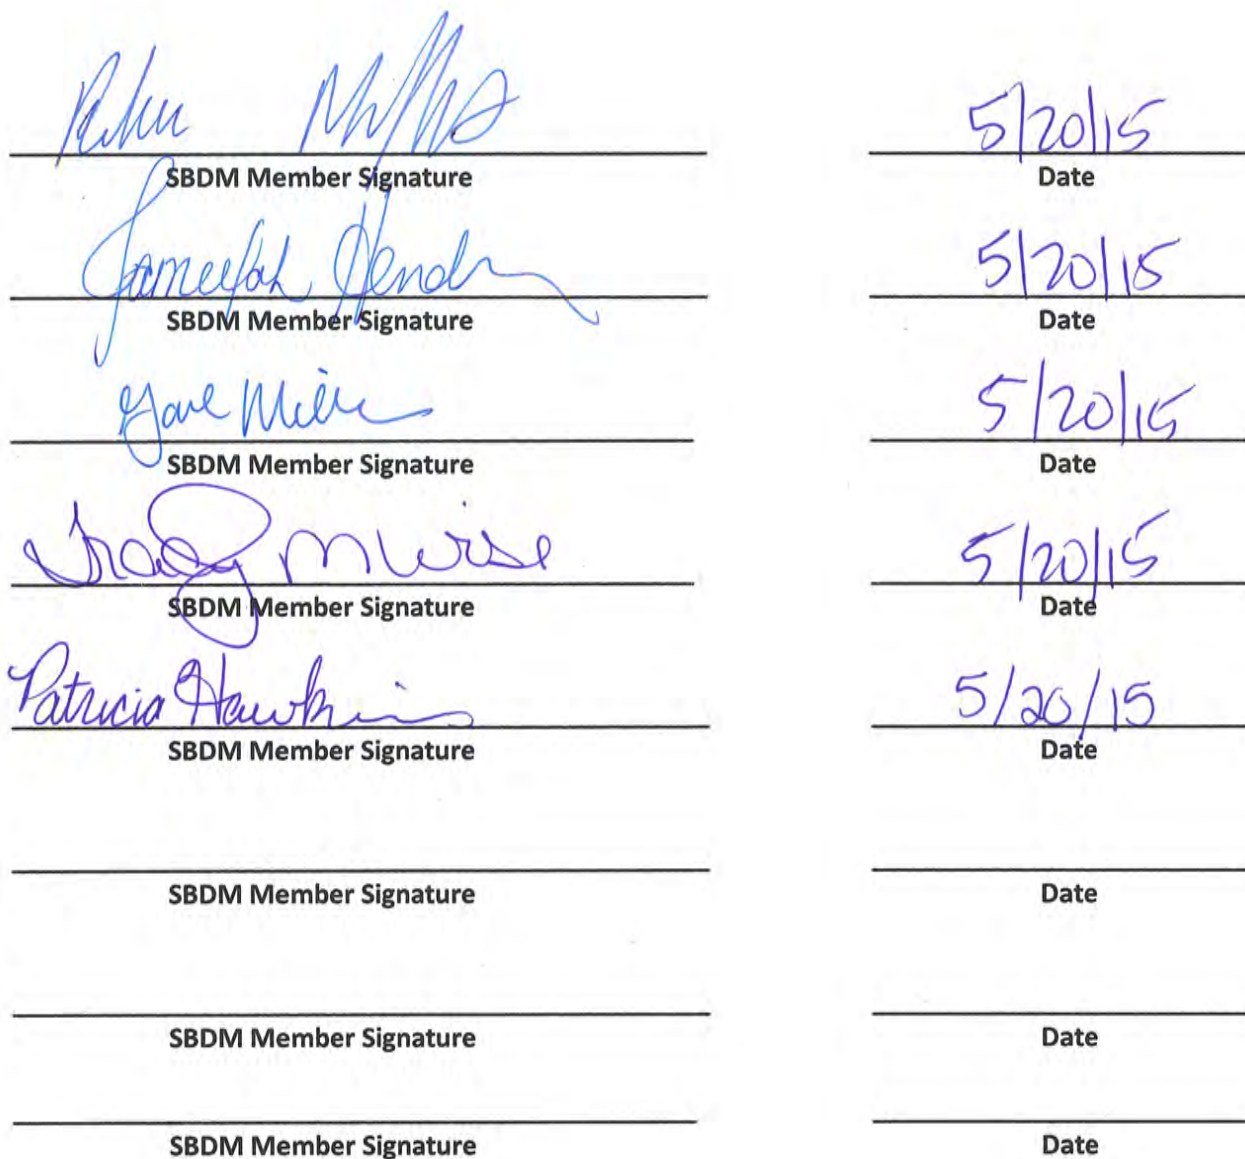 5/20/15
SBDM Member Signature Date
Jameelah Hend 5/20/15
SBDM Member Signature Date
5/20/15
SBDM Member Signature Date
Tracey M Wise 5/20/15
SBDM Member Signature Date
Patricia Hawkins 5/20/15
SBDM Member Signature Date
SBDM Member Signature Date
SBDM Member Signature Date
SBDM Member Signature Date